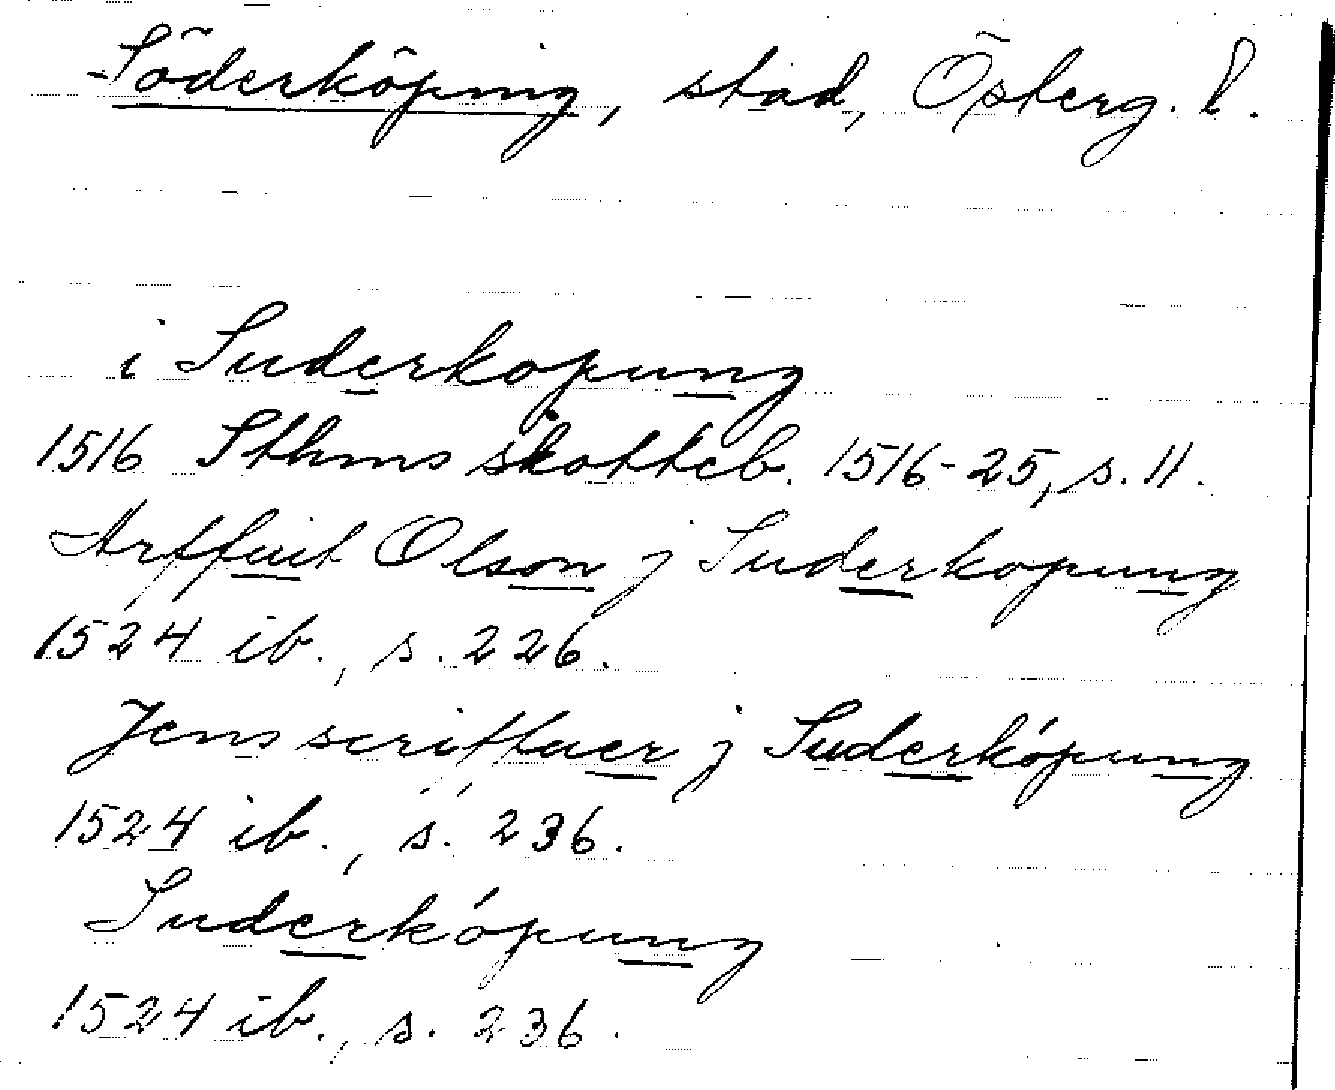 Söderköping, stad, Österg. l.
i Suderkopung
1516 Sthms skotteb. 1516-25, s. 11.
Olson j Suderkopung
1524 ib., s. 226.
Jens scriffuer j Suderkópung
1524 ib., s. 236.
Suderkópung
1524 ib., s. 236.